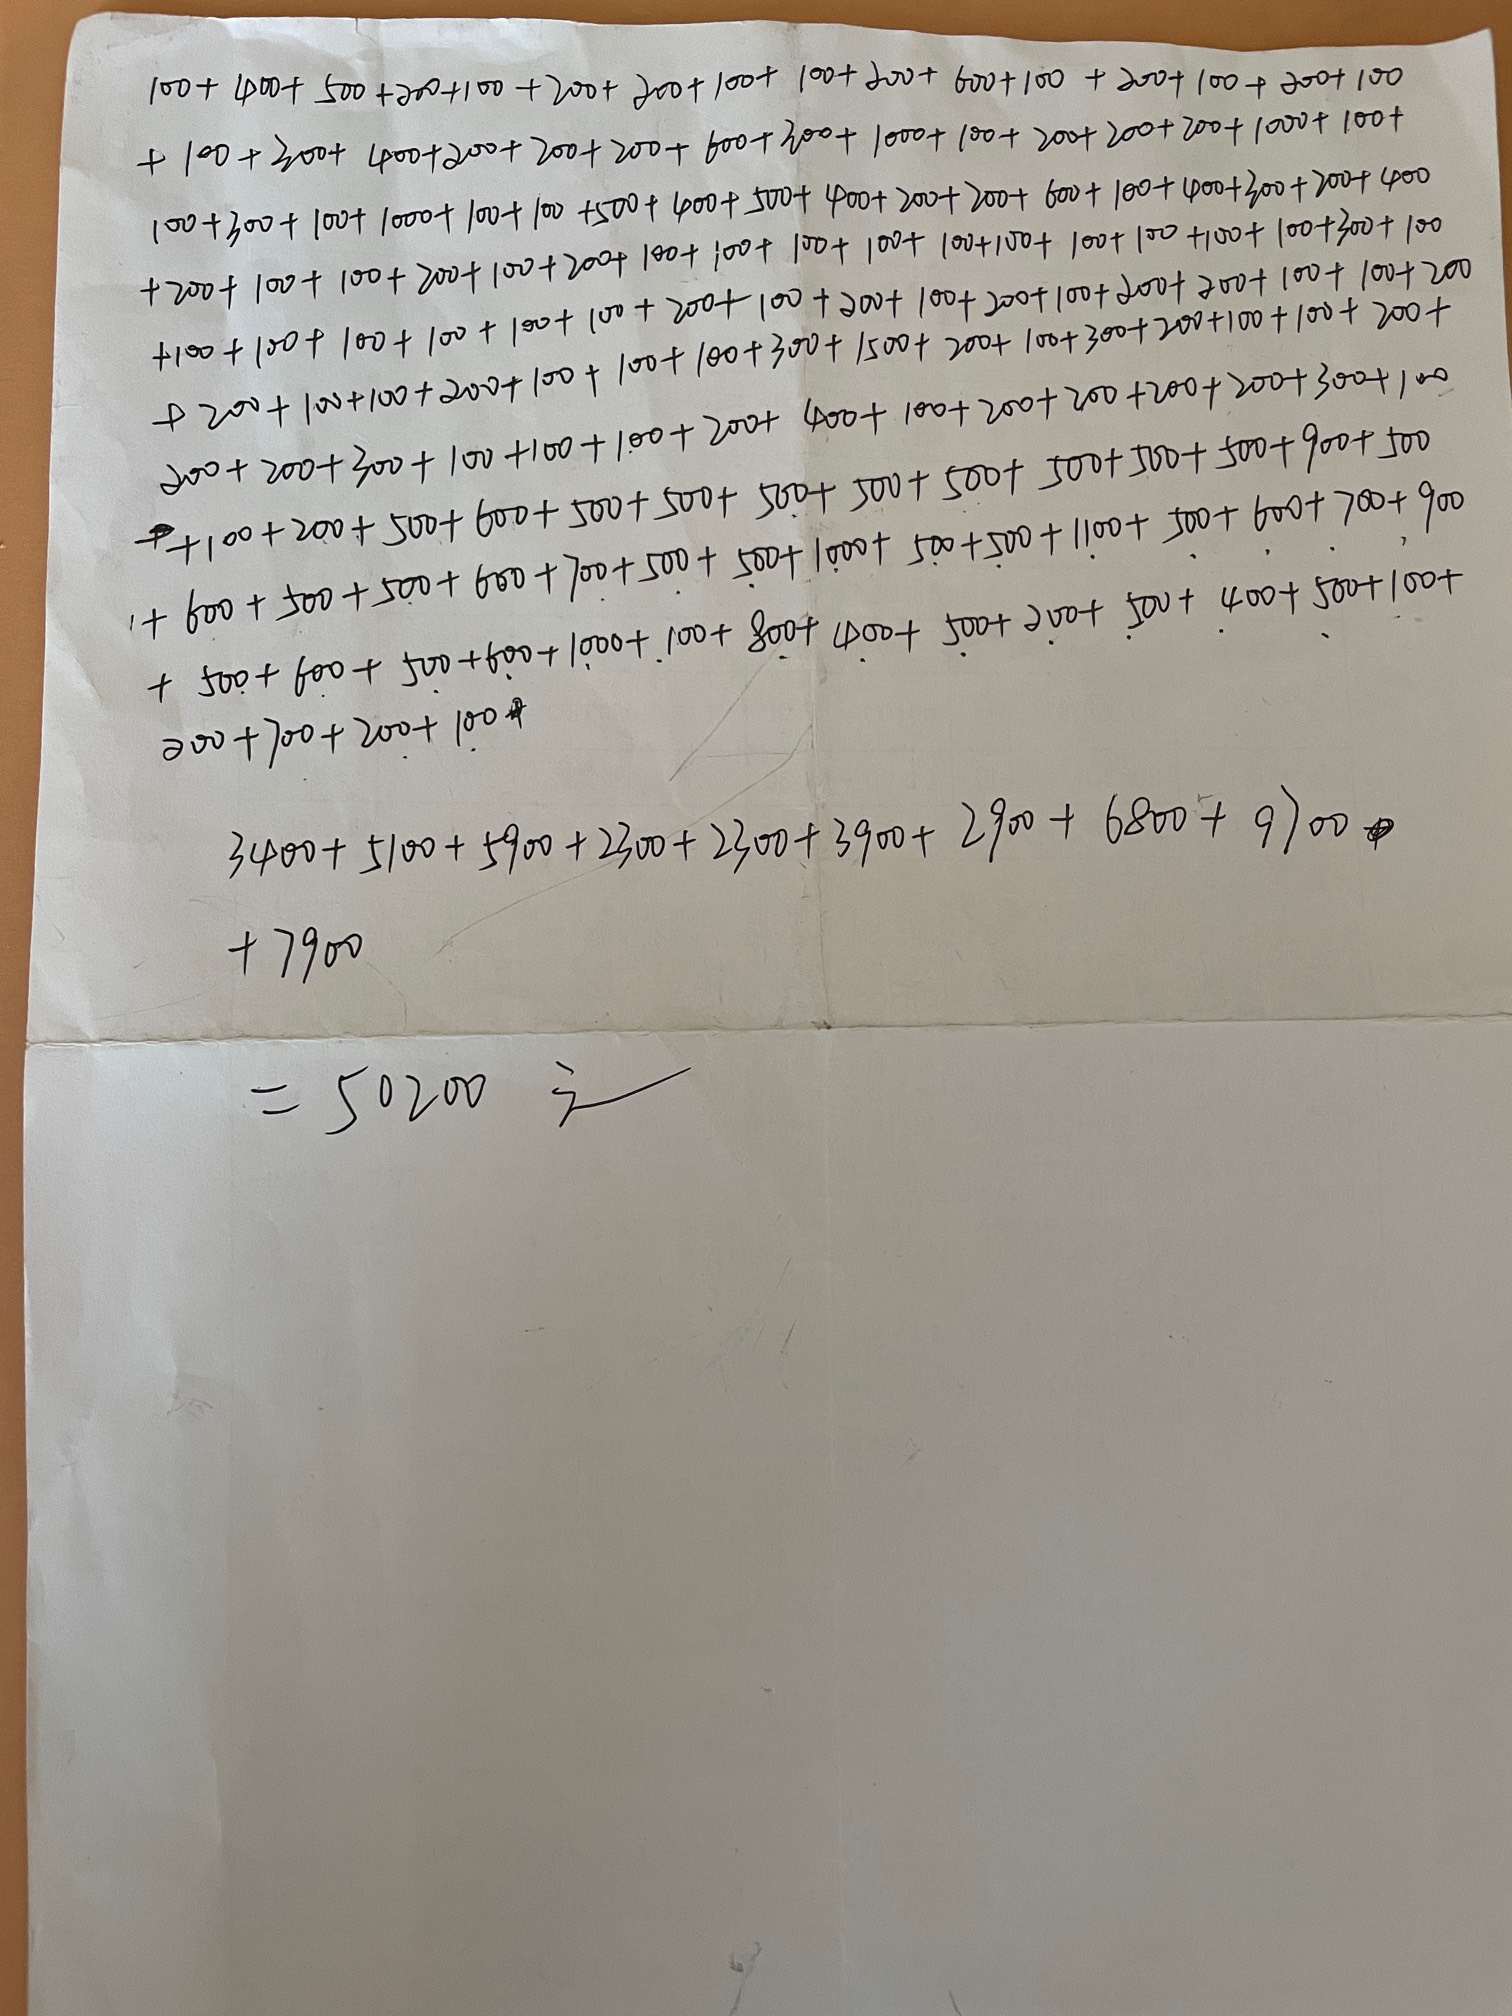 100+400+500+200+100+200+200+100+100+200+600+100+200+100+200+100
+100+300+400+200+200+200+600+300+1000+100+200+200+200+1000+100+
100+300+100+1000+100+100+500+400+500+400+200+200+600+100+400+300+200+400
+200+100+100+200+100+200+100+100+100+100+100+100+100+100+100+100+300+100
+100+100+100+100+100+100+200+100+200+100+200+100+200+200+100+100+200
+200+100+100+200+100+100+100+300+1500+200+100+300+200+100+100+200+
200+200+300+100+100+100+200+400+100+200+200+200+200+300+100
+100+200+500+600+500+500+500+500+500+500+500+500+900+500
+600+500+500+600+700+500+500+1000+500+500+1100+500+600+700+900
+500+600+500+600+1000+100+800+400+500+200+500+400+500+100+
200+700+200+100
3400+5100+5900+2300+2300+3900+2900+6800+9700
+7900
=50200